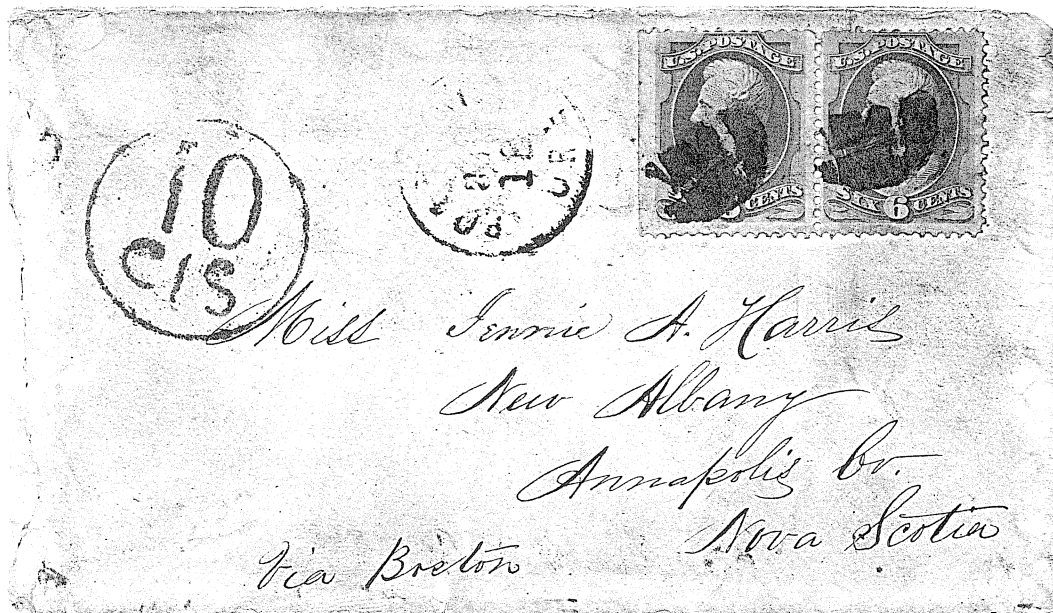 U.S. POSTAGE
U.S. POSTAGE
CENTS
SIX 6 CENTS
10
CTS
Miss Jennie A. Harris
New Albany
Annapolis Co.
Nova Scotia
Via Boston